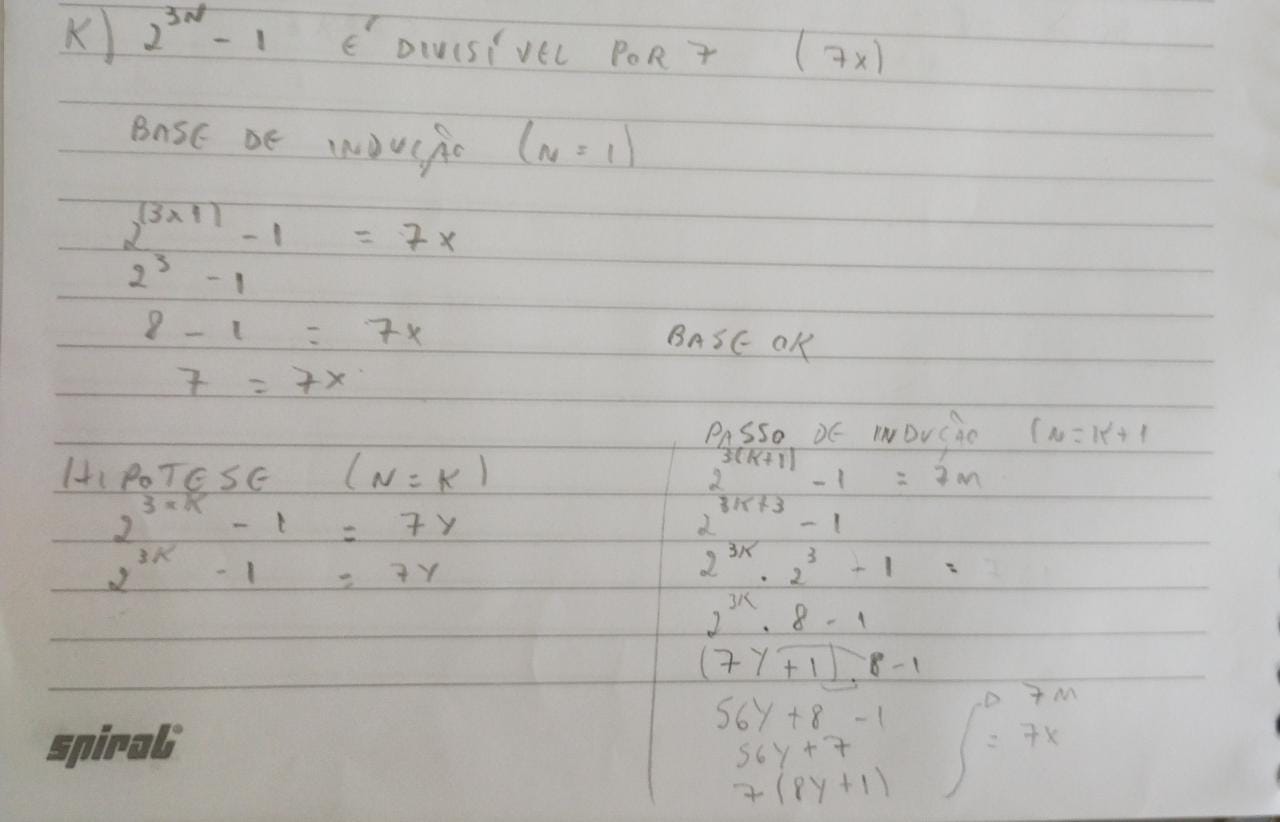 K) 2^3N - 1 É DIVISÍVEL POR 7 (7x)
BASE DE INDUÇÃO (N = 1)
2^(3x1) - 1 = 7x
2^3 - 1
8 - 1 = 7x
7 = 7x
BASE OK
HIPOTESE (N = K)
2^3xK - 1 = 7Y
2^3K - 1 = 7Y
PASSO DE INDUÇÃO (N = K+1
2^3(K+1) - 1 = 7M
2^3K+3 - 1
2^3K . 2^3 + 1 =
2^3K . 8 - 1
(7Y + 1) . 8 - 1
56Y + 8 - 1
56Y + 7
7(8Y + 1)
7M
= 7x
spiral®